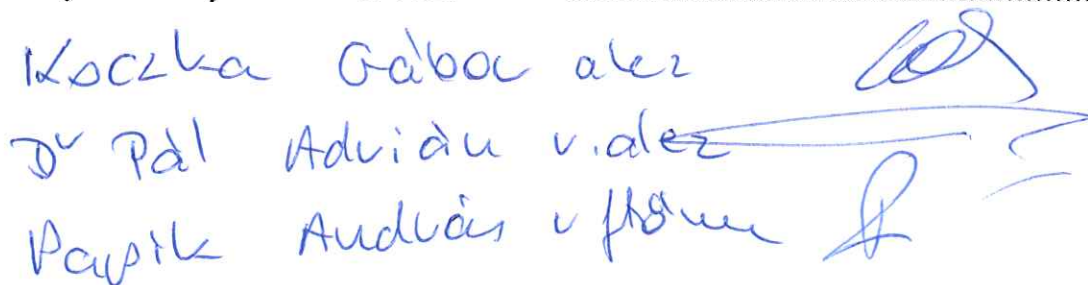 Koczka Gábor alez
Dr Pál Adrián v. alez
Papsik András v ftörm